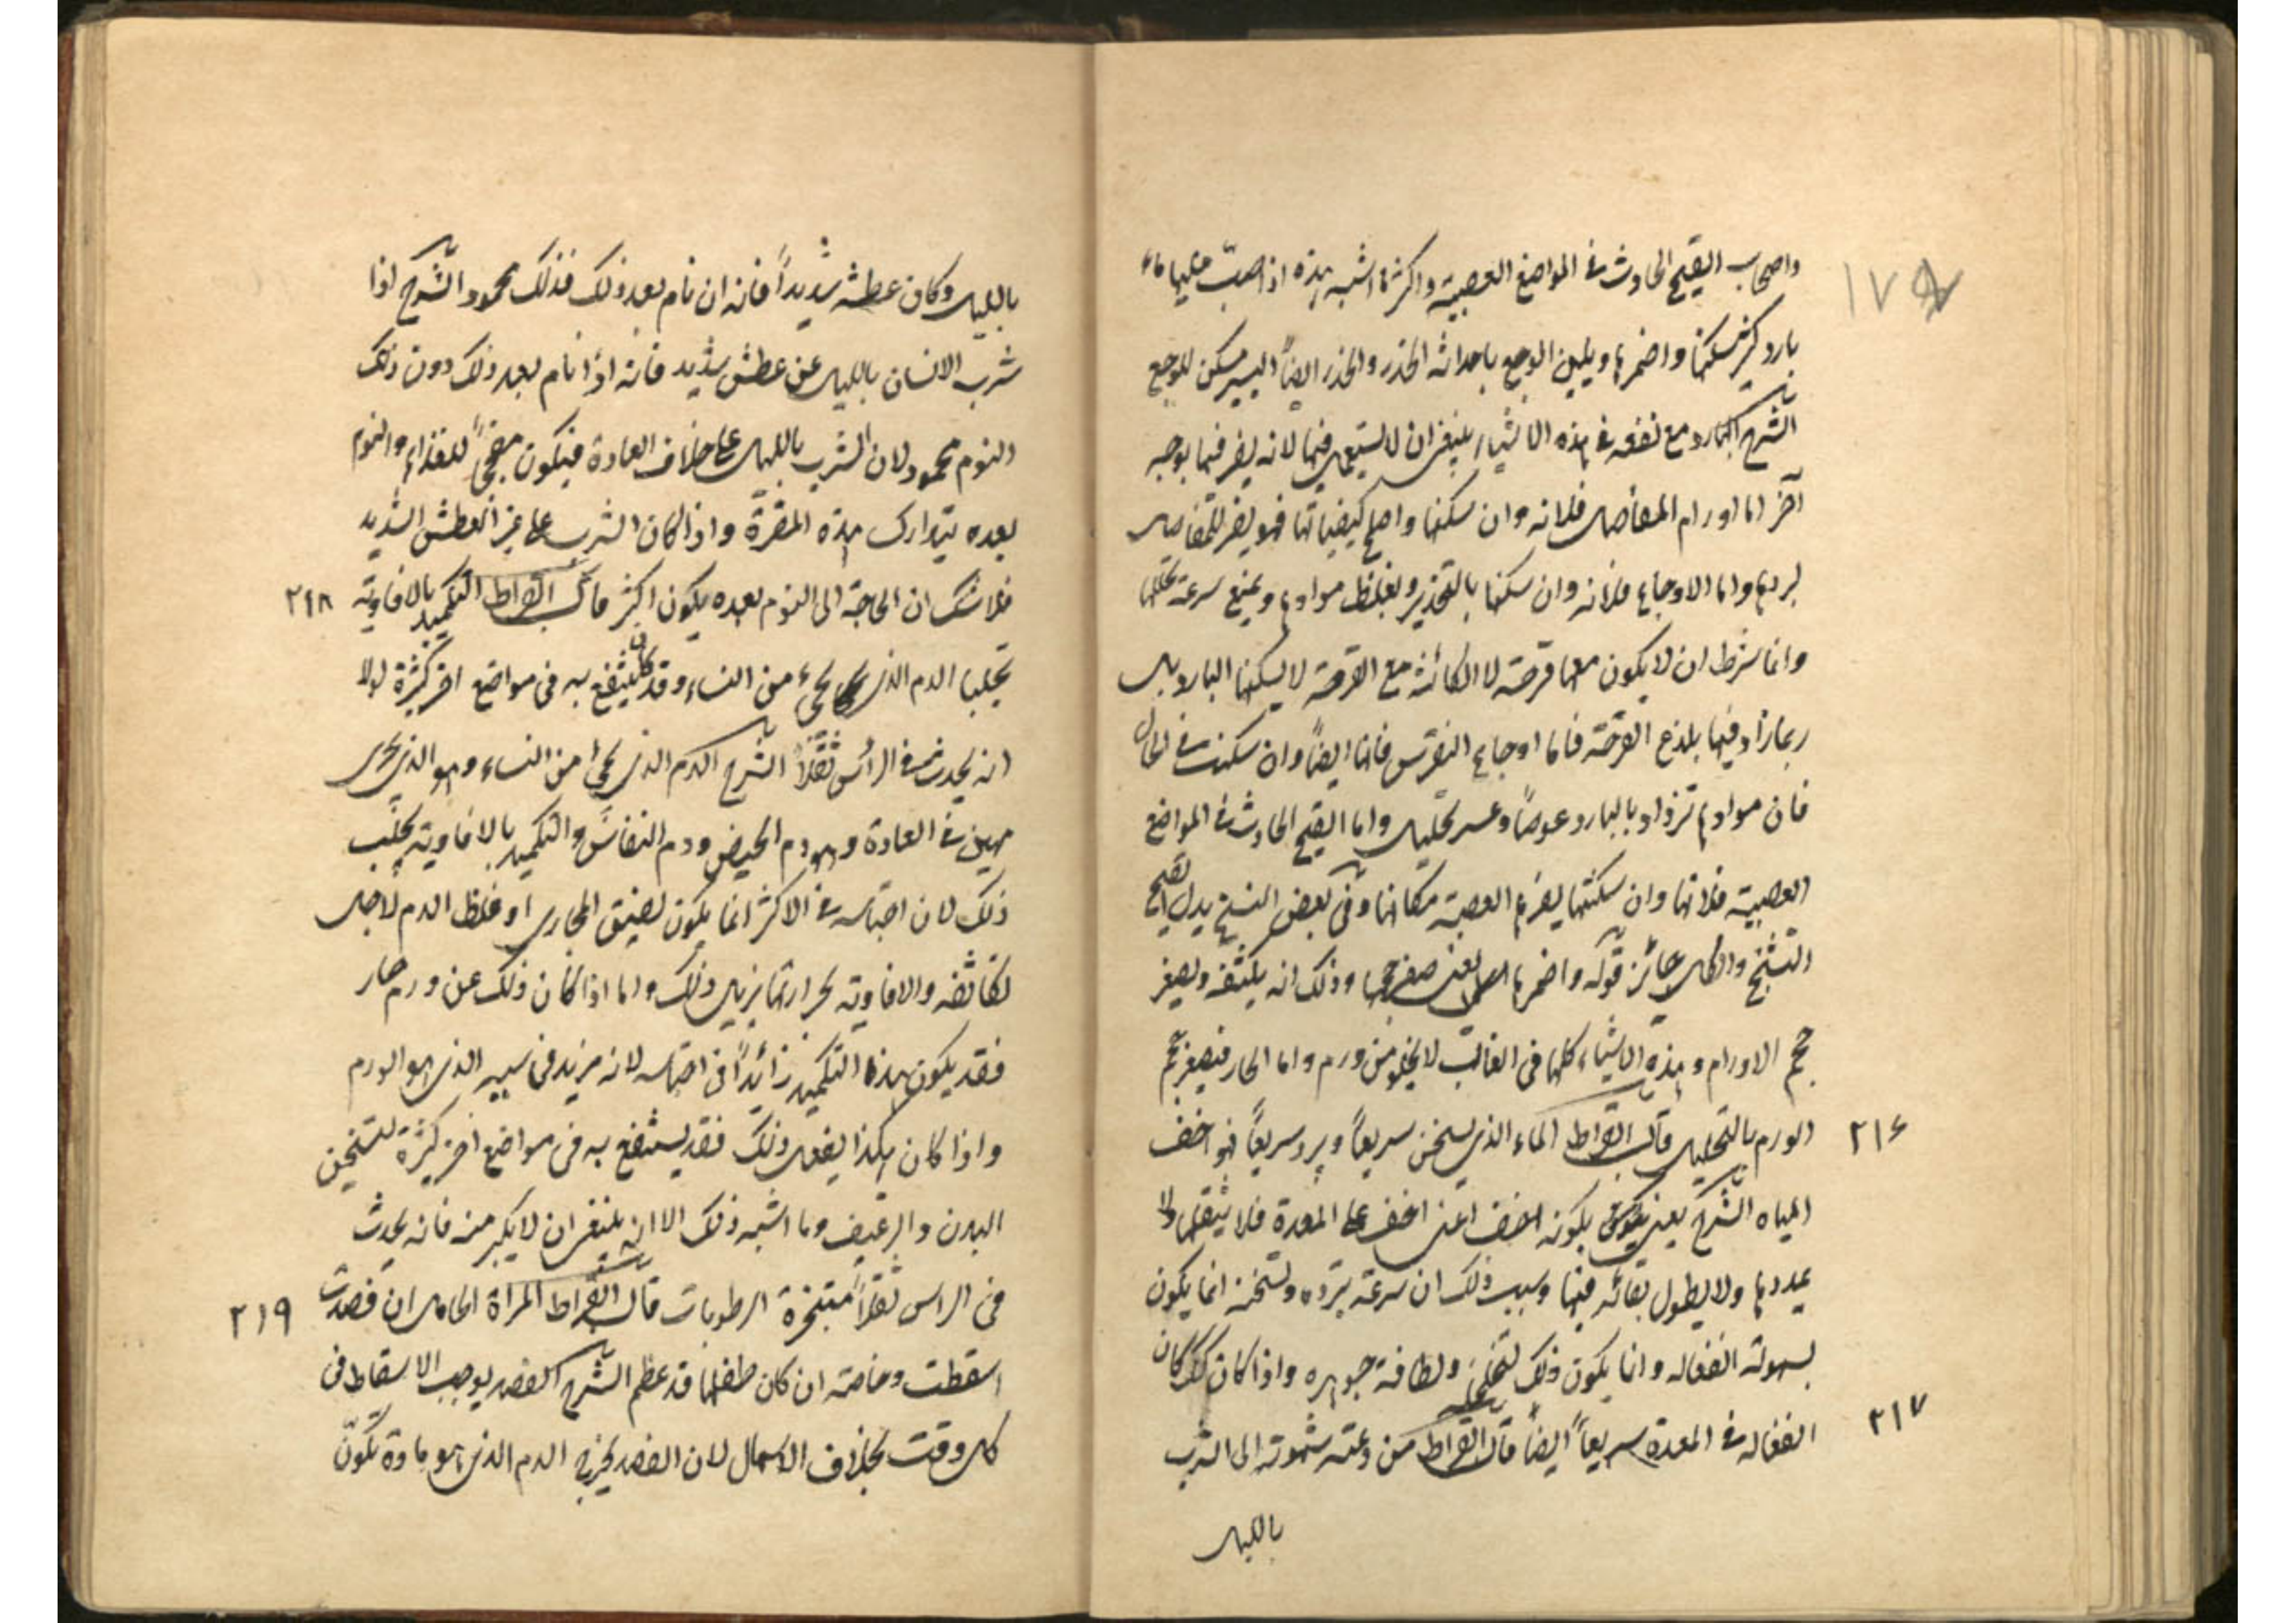 ١٧٥
واصحاب القيح الحادث فى المواضع العصبية واكثر ما اشبه هذه اذا صب عليها ماء
بارد كثر سكنها واضمرها ويلين الوجع باحداثه الخدر والخدر ايضاً اليسير مسكن للوجع
الشرح البارد مع نفعه فى هذه الاشياء ينبغى ان لا يستعمل فيها لانه يضر فيها بوجه
آخر اما اورام المفاصل فلانه وان سكنها واصلح كيفياتها فهو يضر للمفاصل
لبردها واما الاوجاع فلانه وان سكنها بالتخدير ويغلظ موادها ويمنع سرعة تحللها
وانما شرط ان لا يكون معها قرحة لا الكائنة مع القرحة لا يسكنها البارد بل
ربما زاد فيها بلذع القرحة فاما اوجاع النقرس فانها ايضاً وان سكنت فى الحال
فان موادها تزداد بالبارد غوصاً وعسر تحليل واما القيح الحادث فى المواضع
العصبية فلانها وان سكنتها يضر العصبة مكانها وفى بعض النسخ بدل القيح
التشنج والكل جائز قوله واضمرها يعنى صغر حجمها وذلك انه يكثفه ويصغر
حجم الاورام وهذه الاشياء كلها فى الغالب لا يخلو من ورم واما الحار فيصغر حجم
٢١٦ الورم بالتحليل قال ابقراط الماء الذى يسخن سريعاً ويبرد سريعاً فهو اخف
المياه الشرح يعنى بكونه اخف اعنى اخف على المعدة فلا يثقلها ولا
يمددها ولا يطول بقائه فيها وسبب ذلك ان سرعة تبرده وتسخنه انما يكون
بسهولة انفعاله وانما يكون ذلك لتخلخله ولطافة جوهره واذا كان كذلك كان
٢١٧ انفعاله فى المعدة سريعاً ايضاً قال ابقراط من دعته شهوته الى الشرب
بالليل
بالليل وكان عطشه شديداً فانه ان نام بعد ذلك فذلك محمود الشرح اذا
شرب الانسان بالليل عن عطش شديد فانه اذا نام بعد ذلك دون ذلك
النوم محمود لان الشرب بالليل على خلاف العادة فيكون مفججاً للغذاء والنوم
بعده يتدارك هذه المضرة واذا كان الشرب على غير العطش الشديد
فلا شك ان الحاجة الى النوم بعده يكون اكثر قال ابقراط التكميد بالافاوية ٢١٨
يجلب الدم الذى يجىء من النساء وقد كان ينتفع به فى مواضع اخر كثيرة لولا
انه يحدث فى الرأس ثقلاً الشرح الدم الذى يجىء من النساء وهو الذى يجرى
منهن فى العادة وهو دم الحيض ودم النفاس والتكميد بالافاوية يجلب
ذلك لان احتباسه فى الاكثر انما يكون لضيق المجارى او غلظ الدم لاجل
تكاثفه والافاوية بحرارتها يزيل ذلك واما اذا كان ذلك عن ورم حار
فقد يكون هذا التكميد زائداً فى احتباسه لانه مزيد فى سببه الذى هو الورم
واذا كان هكذا يفعل ذلك فقد ينتفع به فى مواضع اخر كثيرة لتسخين
البدن والرغيف وما اشبه ذلك الا انه ينبغى ان لا يكثر منه فانه يحدث
فى الراس ثقلاً بتبخره الرطوبات قال ابقراط المراة الحامل ان فصدت ٢١٩
اسقطت وخاصة ان كان طفلها قد عظم الشرح الفصد يوجب الاسقاط فى
كل وقت بخلاف الاسهال لان الفصد يخرج الدم الذى هو مادة تكون